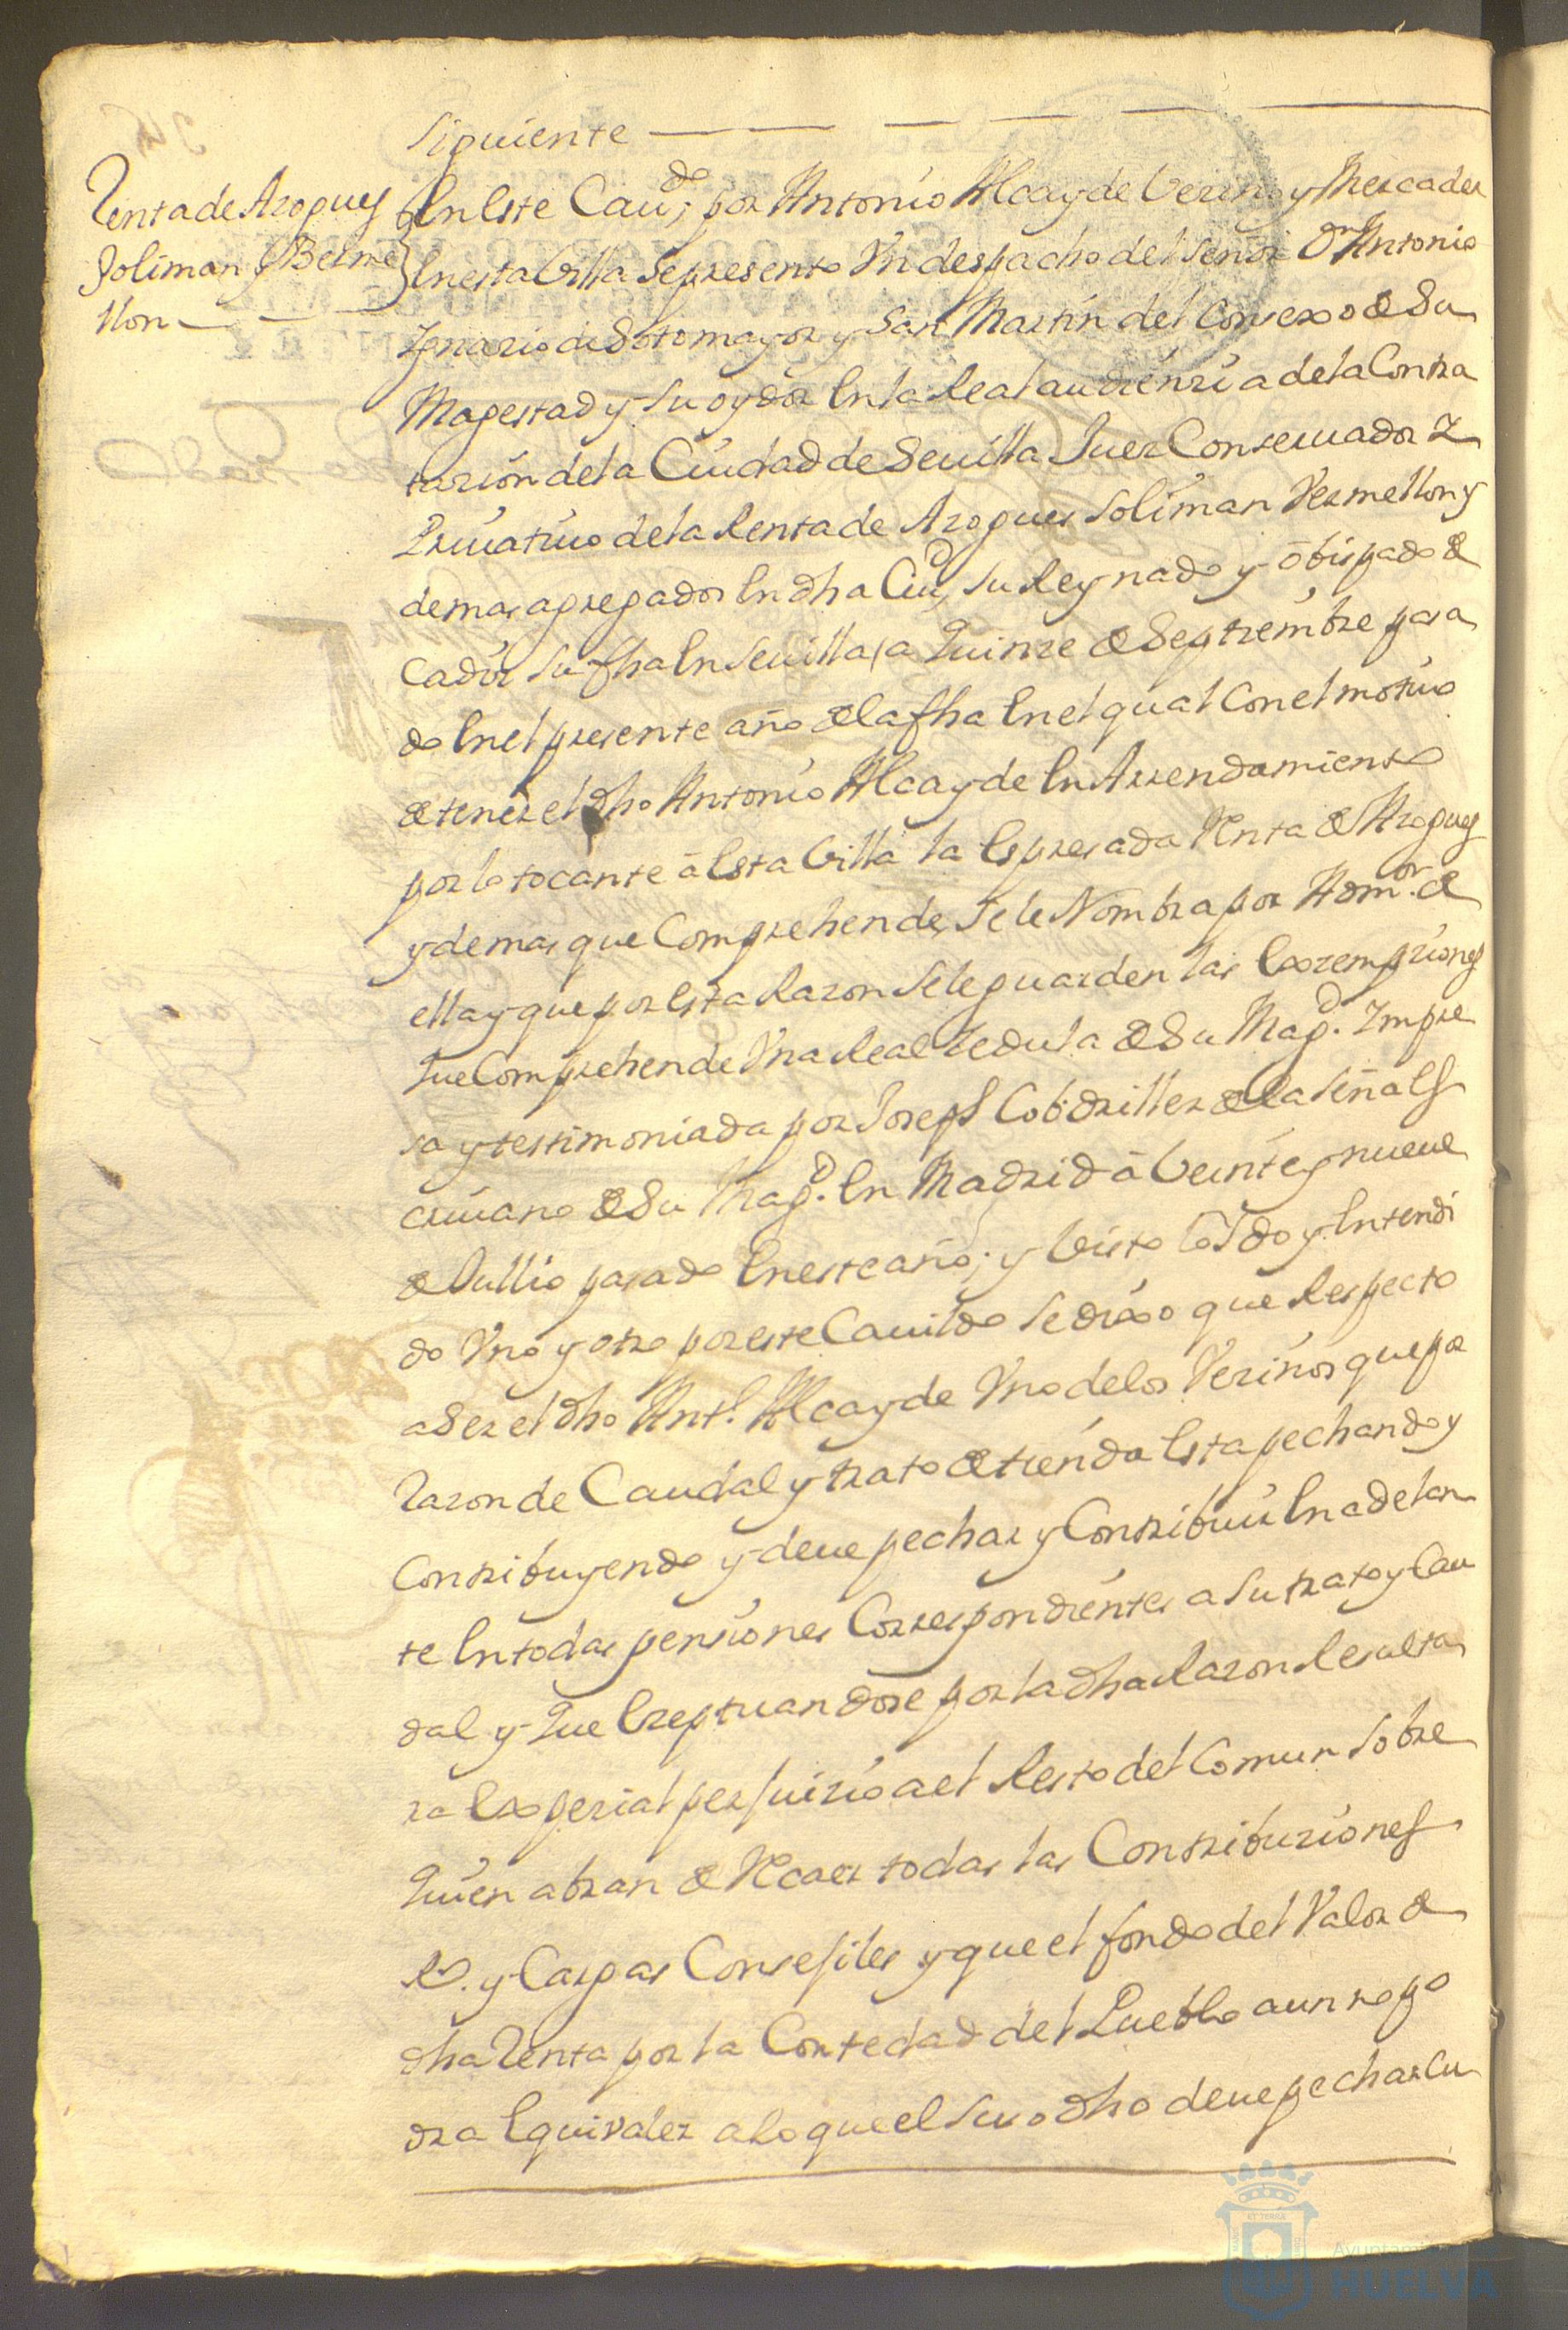 Siguiente
Renta de Azogues
Soliman y Berme
llon
En Este Cauᵈᵒ; por Antonio Alcayde Vezino y Mercader
En esta Villa Se presento Vn despacho del Señor Dⁿ Antonio
Ygnacio de Sotomayor y San Martin del Consexo de Su
Magestad y Su oydor En la Real audienzia de la Contra
tazion de la Ciudad de Seuilla Juez Conseruador I
Priuatiuo de la Renta de Azogues Soliman Vermellon y
demas agregados En dha Ciuᵈ, Su Reynado y obispado de
Cadiz Su fha En Seuilla a Quinze de Septiembre pasa
do En el presente año de la fha En el qual Con el motiuo
de tener el dho Antonio Alcayde En Arrendamiento
por lo tocante â Esta Villa la Espresada Renta de Azogues
y demas que Comprehende, Se le Nombra por Admᵒʳ. de
ella y que por Esta Razon Se le guarden las Exzempziones
Que Comprehende Vna Real Zedula de Su Magᵈ. Impre
sa y testimoniada por Joseph Cobdrillez de la Señal Es
criuano de Su Magᵈ. En Madrid â Veinte y nueue
de Jullio pasado En este año; y Visto oydo y Entendi
do Vno y otro por este Cauildo Se dixo que Respecto
a Ser el dho Antᵒ. Alcayde Vno de los Vezinos que por
Razon de Caudal y trato de tienda Esta pechando y
Contribuyendo y deue pechar y Contribuir En adelan
te En todas pensiones Correspondientes a Su trato y Cau
dal y Que Exeptuandose por la dha Razon Resulta
ra Expezial perjuizio a el Resto del Comun Sobre
Quien abran de Recaer todas las Contribuziones
Rˢ. y Cargas Consejiles y que el fondo del Valor de
dha Renta por la Cortedad del Pueblo aun no po
dra Equivaler a lo que el Suso dho deue pechar Cu
Ayuntam
HUELVA